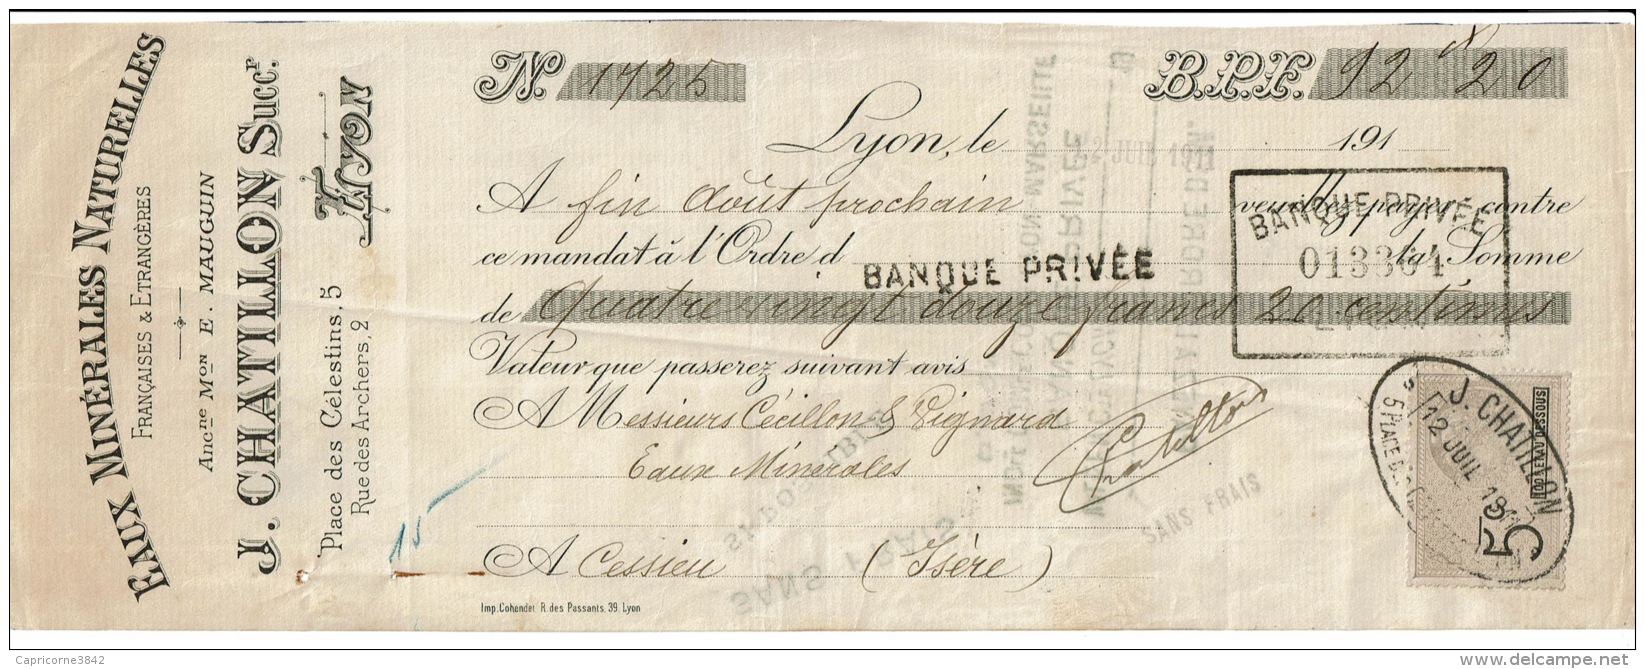 EAUX MINÉRALES NATURELLES
FRANÇAISES & ETRANGÈRES
Anc.ne Mon E. MAUGUIN
J. CHATILLON Succr.
LYON
Place des Célestins, 5
Rue des Archers, 2
No. 1725
B.P.F. 92 20
Lyon, le 12 JUIL 1911 191
A fin Août prochain veuillez payer contre
ce mandat à l'Ordre d BANQUE PRIVÉE la Somme
de Quatre vingt douze francs 20 centimes
Valeur que passerez suivant avis
A Messieurs Cécillon & Vignard
Eaux Minérales
A Cessieu (Isère)
Chatillon
BANQUE PRIVÉE
013364
LYON
SANS FRAIS
SANS FRAIS
15
J. CHATILLON
12 JUIL 1911
5 PLACE DES
LYON
100F ET AU DESSOUS
5c
Imp. Cohendet R. des Passants, 39, Lyon
Capricorne3842
delcampe.net